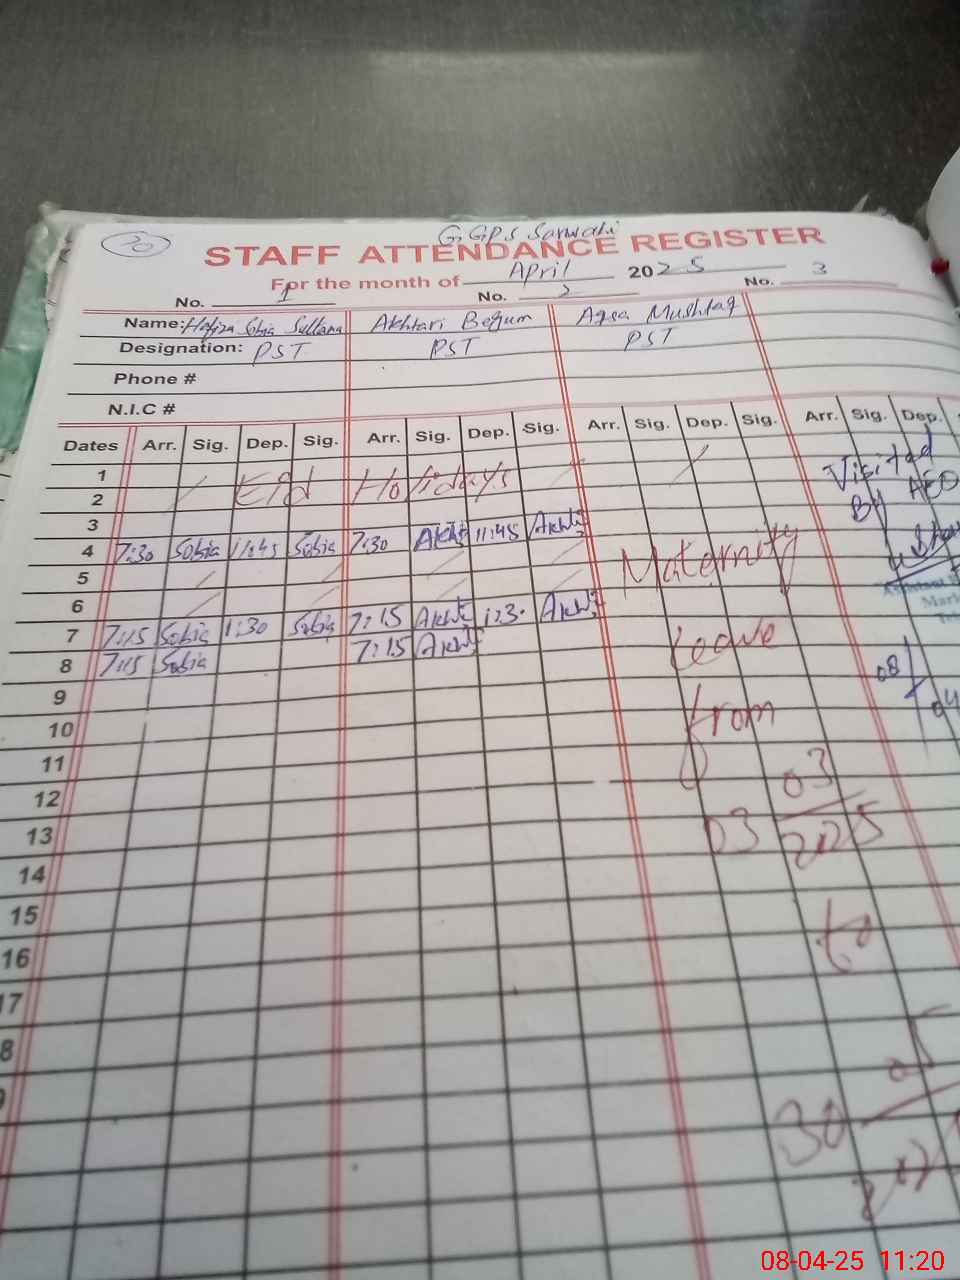 20
G.GPS Sarwahi
STAFF ATTENDANCE REGISTER
For the month of April 2025
No. 1 No. 2 No. 3
Name: Hafiza Sobia Sultana Akhtari Begum Aqsa Mushtaq
Designation: PST PST PST
Phone #
N.I.C #
Dates Arr. Sig. Dep. Sig. Arr. Sig. Dep. Sig. Arr. Sig. Dep. Sig. Arr. Sig. Dep.
1
2 Eid Holidays
3
4 7:30 Sobia 11:45 Sobia 7:30 Akhti 11:45 Akhti
5
6
7 7:15 Sobia 1:30 Sobia 7:15 Akhti 1:30 Akhti
8 7:15 Sobia 7:15 Akhti
9
10
11
12
13
14
15
16
17
8
Maternity
Leave
from
03
03 2025
to
05
30
Visited
By AEO
08/04
08-04-25 11:20